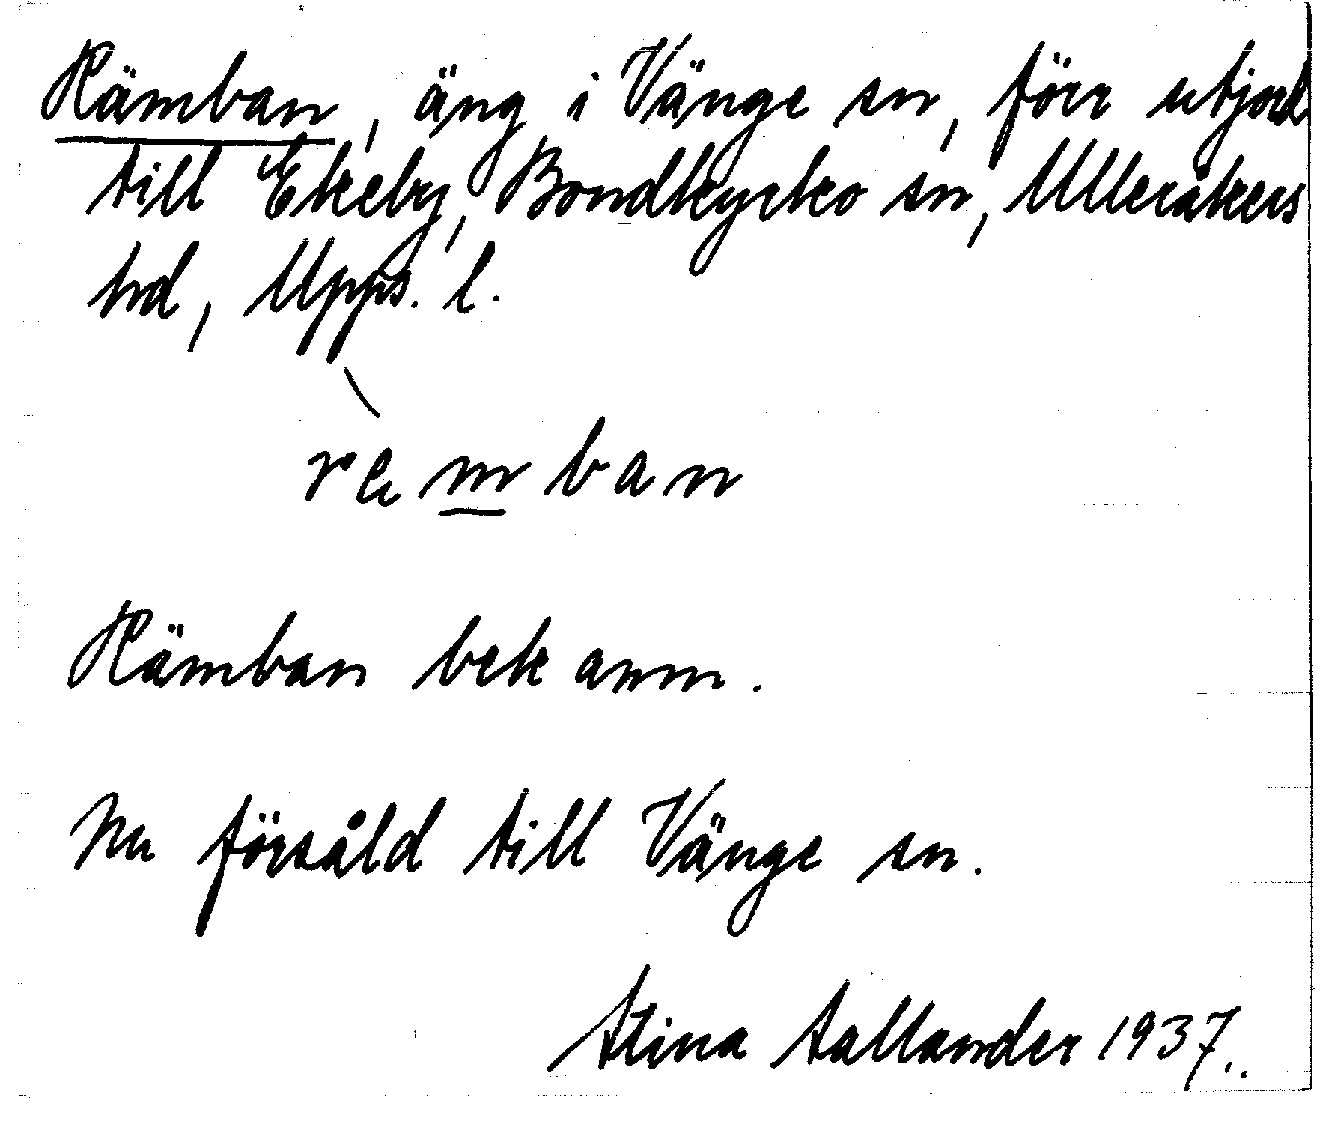 Rämban, äng i Vänge sn, förr utjord
till Ekeby, Bondkyrko sn, Ulleråkers
hd, Upps. l.
remban
Rämban bek anm.
Nu försåld till Vänge sn.
Stina Sallander 1937.